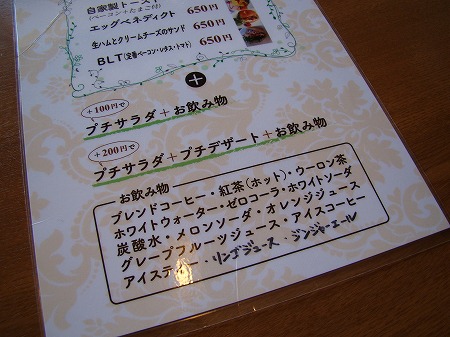 自家製トースト 650円
(ベーコン+たまご付)
エッグベネディクト 650円
生ハムとクリームチーズのサンド 650円
BLT(定番ベーコン・レタス・トマト) 650円
+
+100円で
プチサラダ+お飲み物
+200円で
プチサラダ+プチデザート+お飲み物
お飲み物
ブレンドコーヒー・紅茶(ホット)・ウーロン茶
ホワイトウォーター・ゼロコーラ・ホワイトソーダ
炭酸水・メロンソーダ・オレンジジュース
グレープフルーツジュース・アイスコーヒー
アイスティー・リンゴジュース・ジンジャーエール